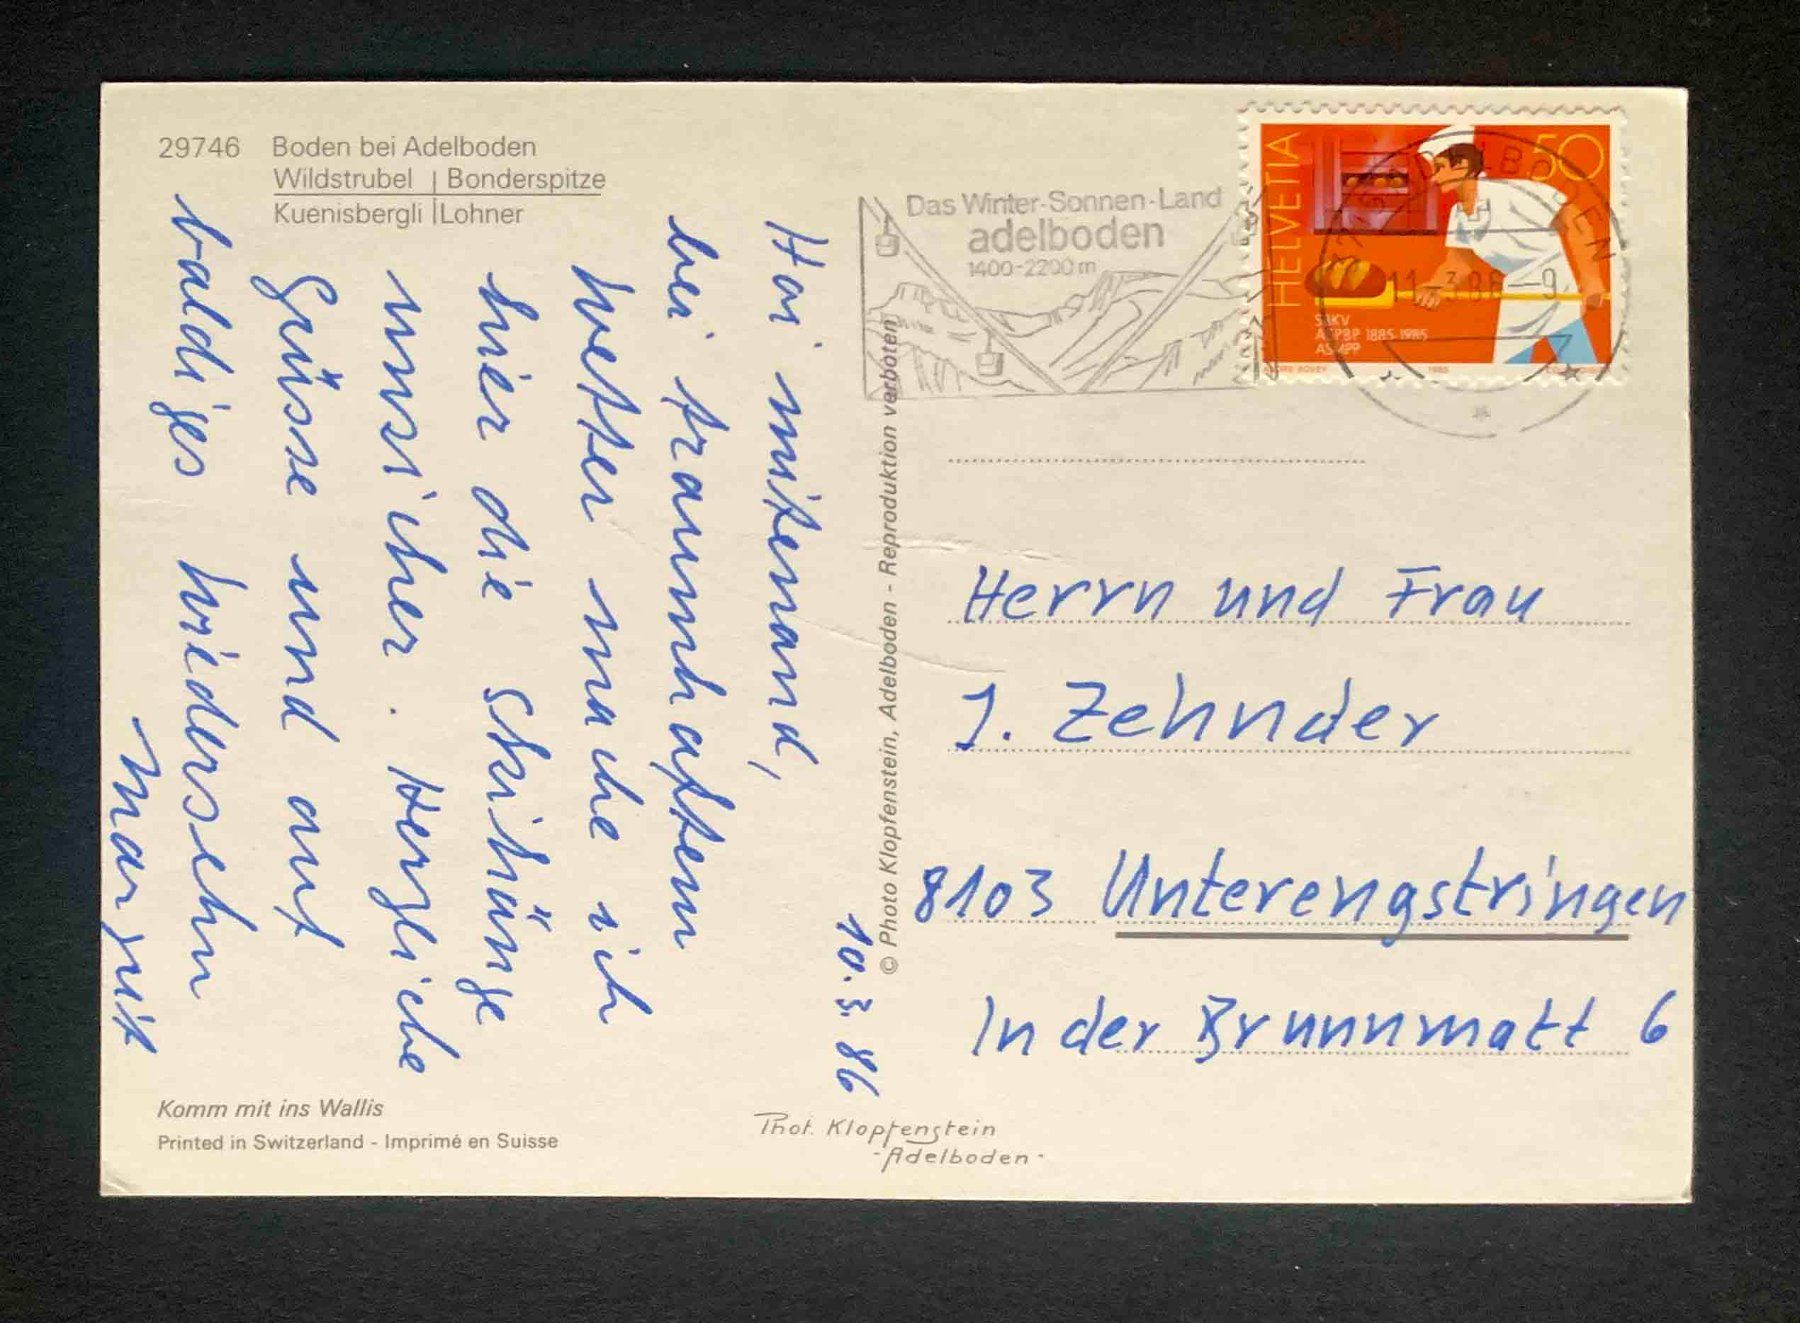 29746 Boden bei Adelboden
Wildstrubel | Bonderspitze
Kuenisbergli | Lohner
10.3.86
Hoi mitenand,
bei traumhaftem
Wetter mache ich
hier die Skihänge
unsicher. Herzliche
Grüsse und auf
baldiges Wiedersehn
Margrit
Komm mit ins Wallis
Printed in Switzerland - Imprimé en Suisse
© Photo Klopfenstein, Adelboden - Reproduktion verboten
Phot. Klopfenstein
-Adelboden-
Das Winter-Sonnen-Land
adelboden
1400-2200 m
HELVETIA
50
1885-1985
1985
ADELBODEN
11-3.86-9
Herrn und Frau
J. Zehnder
8103 Unterengstringen
In der Brunnmatt 6